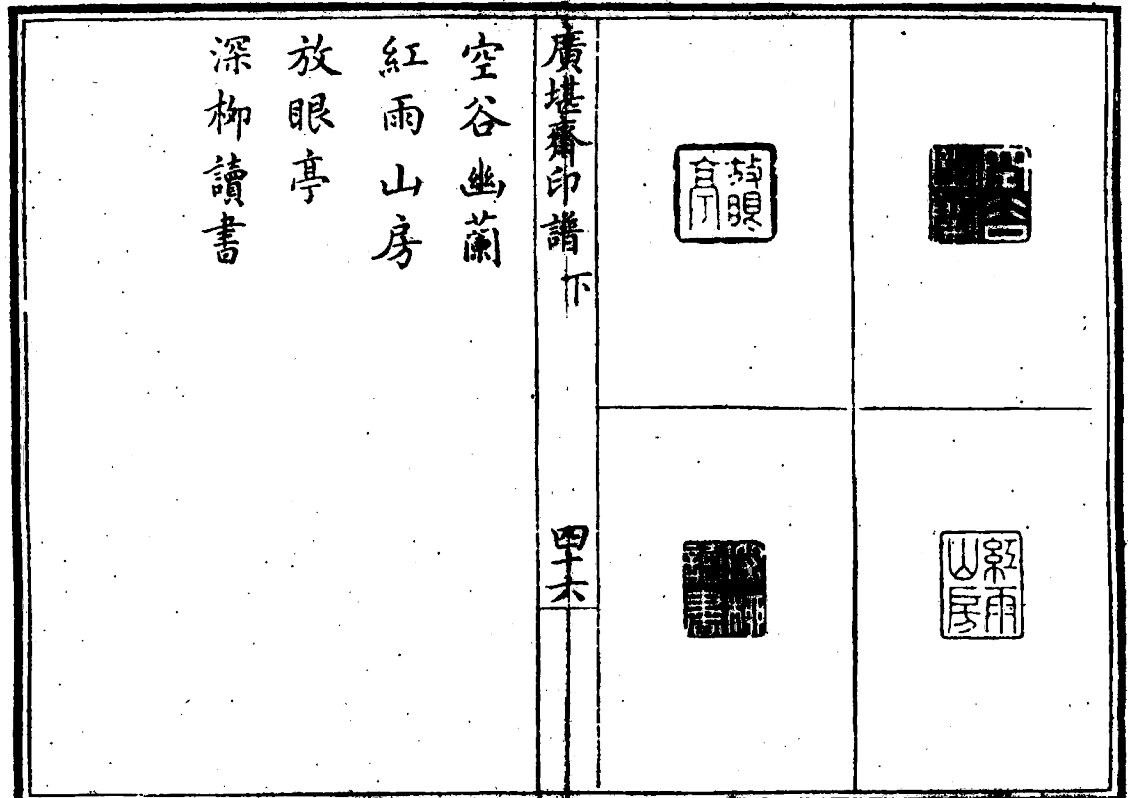 紅雨山房
放眼亭
深柳讀書
廣堪齋印譜 下
四十六
空谷幽蘭
紅雨山房
放眼亭
深柳讀書